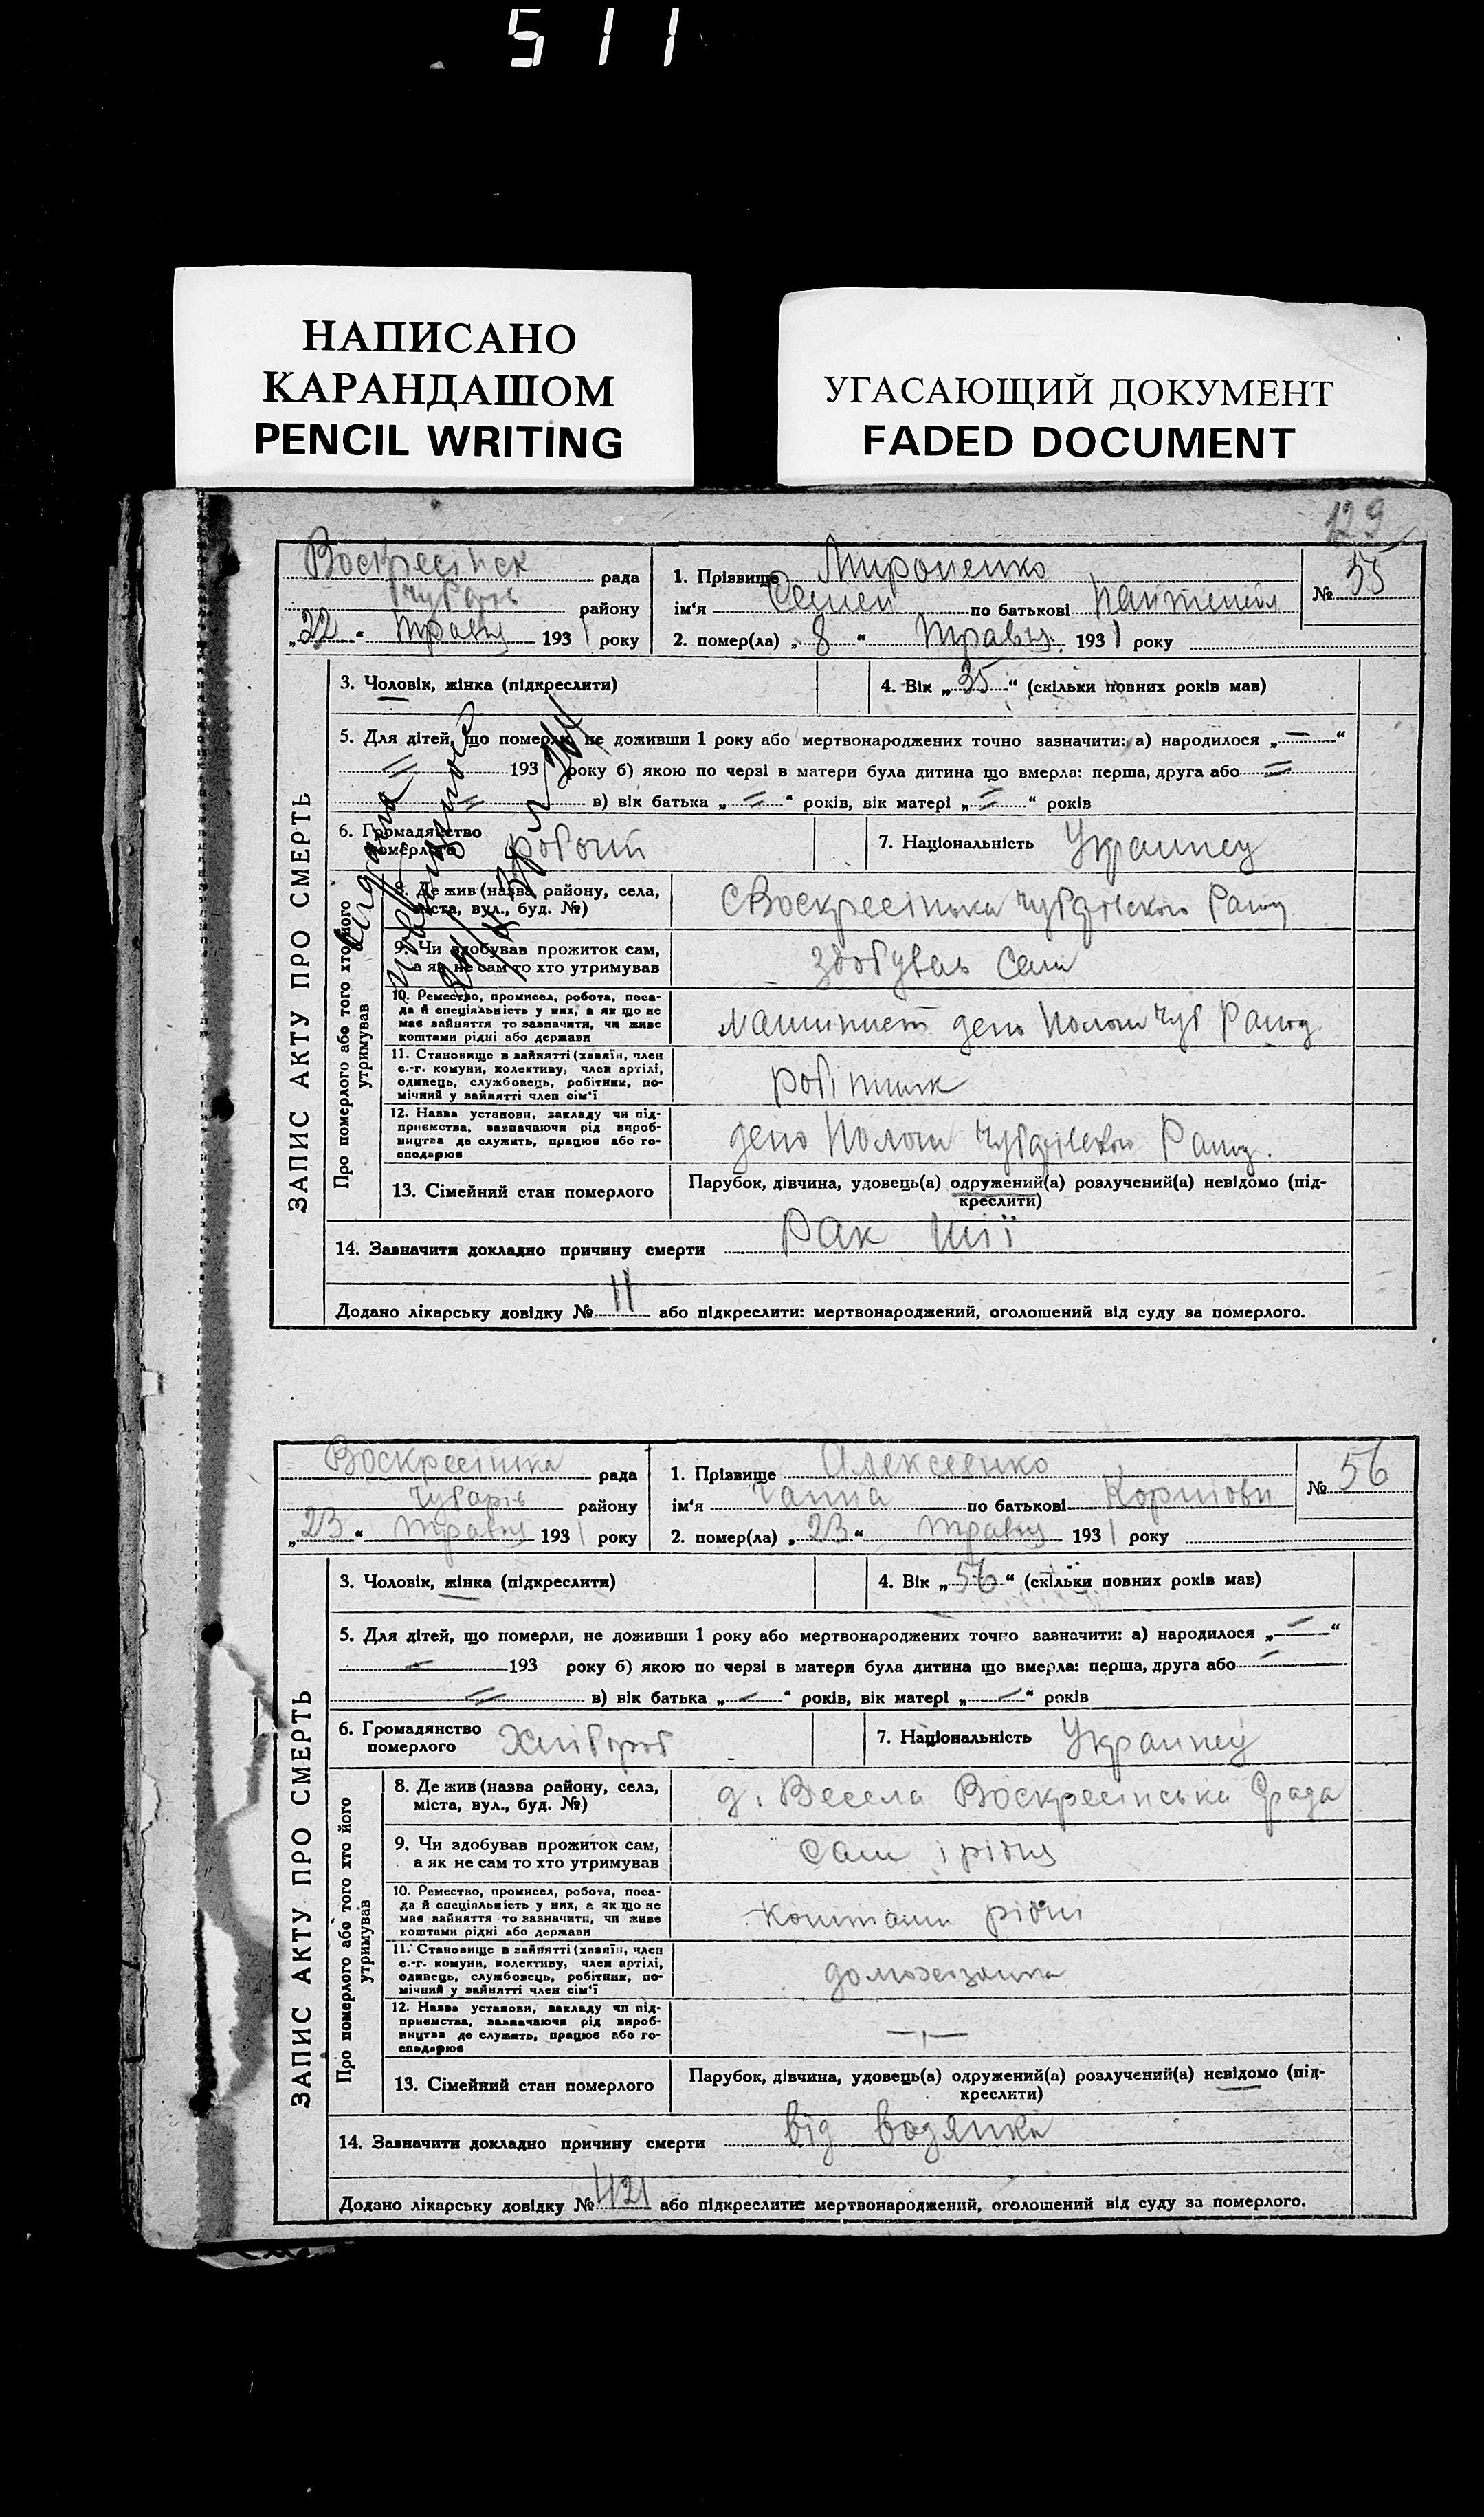 511
НАПИСАНО
КАРАНДАШОМ
PENCIL WRITING
УГАСАЮЩИЙ ДОКУМЕНТ
FADED DOCUMENT
129
ЗАПИС АКТУ ПРО СМЕРТЬ
Воскресінск рада
району
„22“ травня 1931 року
1. Прізвище Мироненко
ім‘я Семен по батькові
№ 55
2. помер(ла) „8“ травня 1931 року
3. Чоловік, жінка (підкреслити)
4. Вік „35“ (скільки повних років мав)
5. Для дітей, що померли, не доживши 1 року або мертвонароджених точно зазначити: а) народилося „—“
193 року б) якою по черзі в матери була дитина що вмерла: перша, друга або
в) вік батька „ “ років, вік матері „ “ років
6. Громадянство
померлого робочий
7. Національність Украинец
Про померлого або того хто його
утримував
8. Де жив (назва району, села,
міста, вул., буд. №)
9. Чи здобував прожиток сам,
а як не сам то хто утримував
здобував сам
10. Ремество, промисел, робота, поса-
да й спеціяльність у них, а як що не
має зайняття то зазначити, чи живе
коштами рідні або держави
машинист депо Пологи Чуб Району
11. Становище в зайнятті (хазяїн, член
с.-г. комуни, колективу, член артілі,
одинець, службовець, робітник, по-
мічний у зайнятті член сім‘ї
робітник
12. Назва установи, закладу чи під-
приємства, зазначаючи рід вироб-
ництва де служить, працює або го-
сподарює
депо Пологи
13. Сімейний стан померлого
Парубок, дівчина, удовець(а) одружений(а) розлучений(а) невідомо (під-
креслити)
14. Зазначити докладно причину смерти Рак шиї
Додано лікарську довідку № 11 або підкреслити: мертвонароджений, оголошений від суду за померлого.
ЗАПИС АКТУ ПРО СМЕРТЬ
Воскресінка рада
Чубарів району
„23“ травня 1931 року
1. Прізвище Алексеенко
ім‘я Ганна по батькові
№ 56
2. помер(ла) „23“ травня 1931 року
3. Чоловік, жінка (підкреслити)
4. Вік „56“ (скільки повних років мав)
5. Для дітей, що померли, не доживши 1 року або мертвонароджених точно зазначити: а) народилося „—“
193 року б) якою по черзі в матери була дитина що вмерла: перша, друга або
в) вік батька „—“ років, вік матері „—“ років
6. Громадянство
померлого Хлібороб
7. Національність Украинец
Про померлого або того хто його
утримував
8. Де жив (назва району, села,
міста, вул., буд. №)
д. Весела Воскресінська с рада
9. Чи здобував прожиток сам,
а як не сам то хто утримував
сам і рідня
10. Ремество, промисел, робота, поса-
да й спеціяльність у них, а як що не
має зайняття то зазначити, чи живе
коштами рідні або держави
коштами рідні
11. Становище в зайнятті (хазяїн, член
с.-г. комуни, колективу, член артілі,
одинець, службовець, робітник, по-
мічний у зайнятті член сім‘ї
домохазяйка
12. Назва установи, закладу чи під-
приємства, зазначаючи рід вироб-
ництва де служить, працює або го-
сподарює
13. Сімейний стан померлого
Парубок, дівчина, удовець(а) одружений(а) розлучений(а) невідомо (під-
креслити)
14. Зазначити докладно причину смерти від водянка
Додано лікарську довідку № 421 або підкреслити: мертвонароджений, оголошений від суду за померлого.